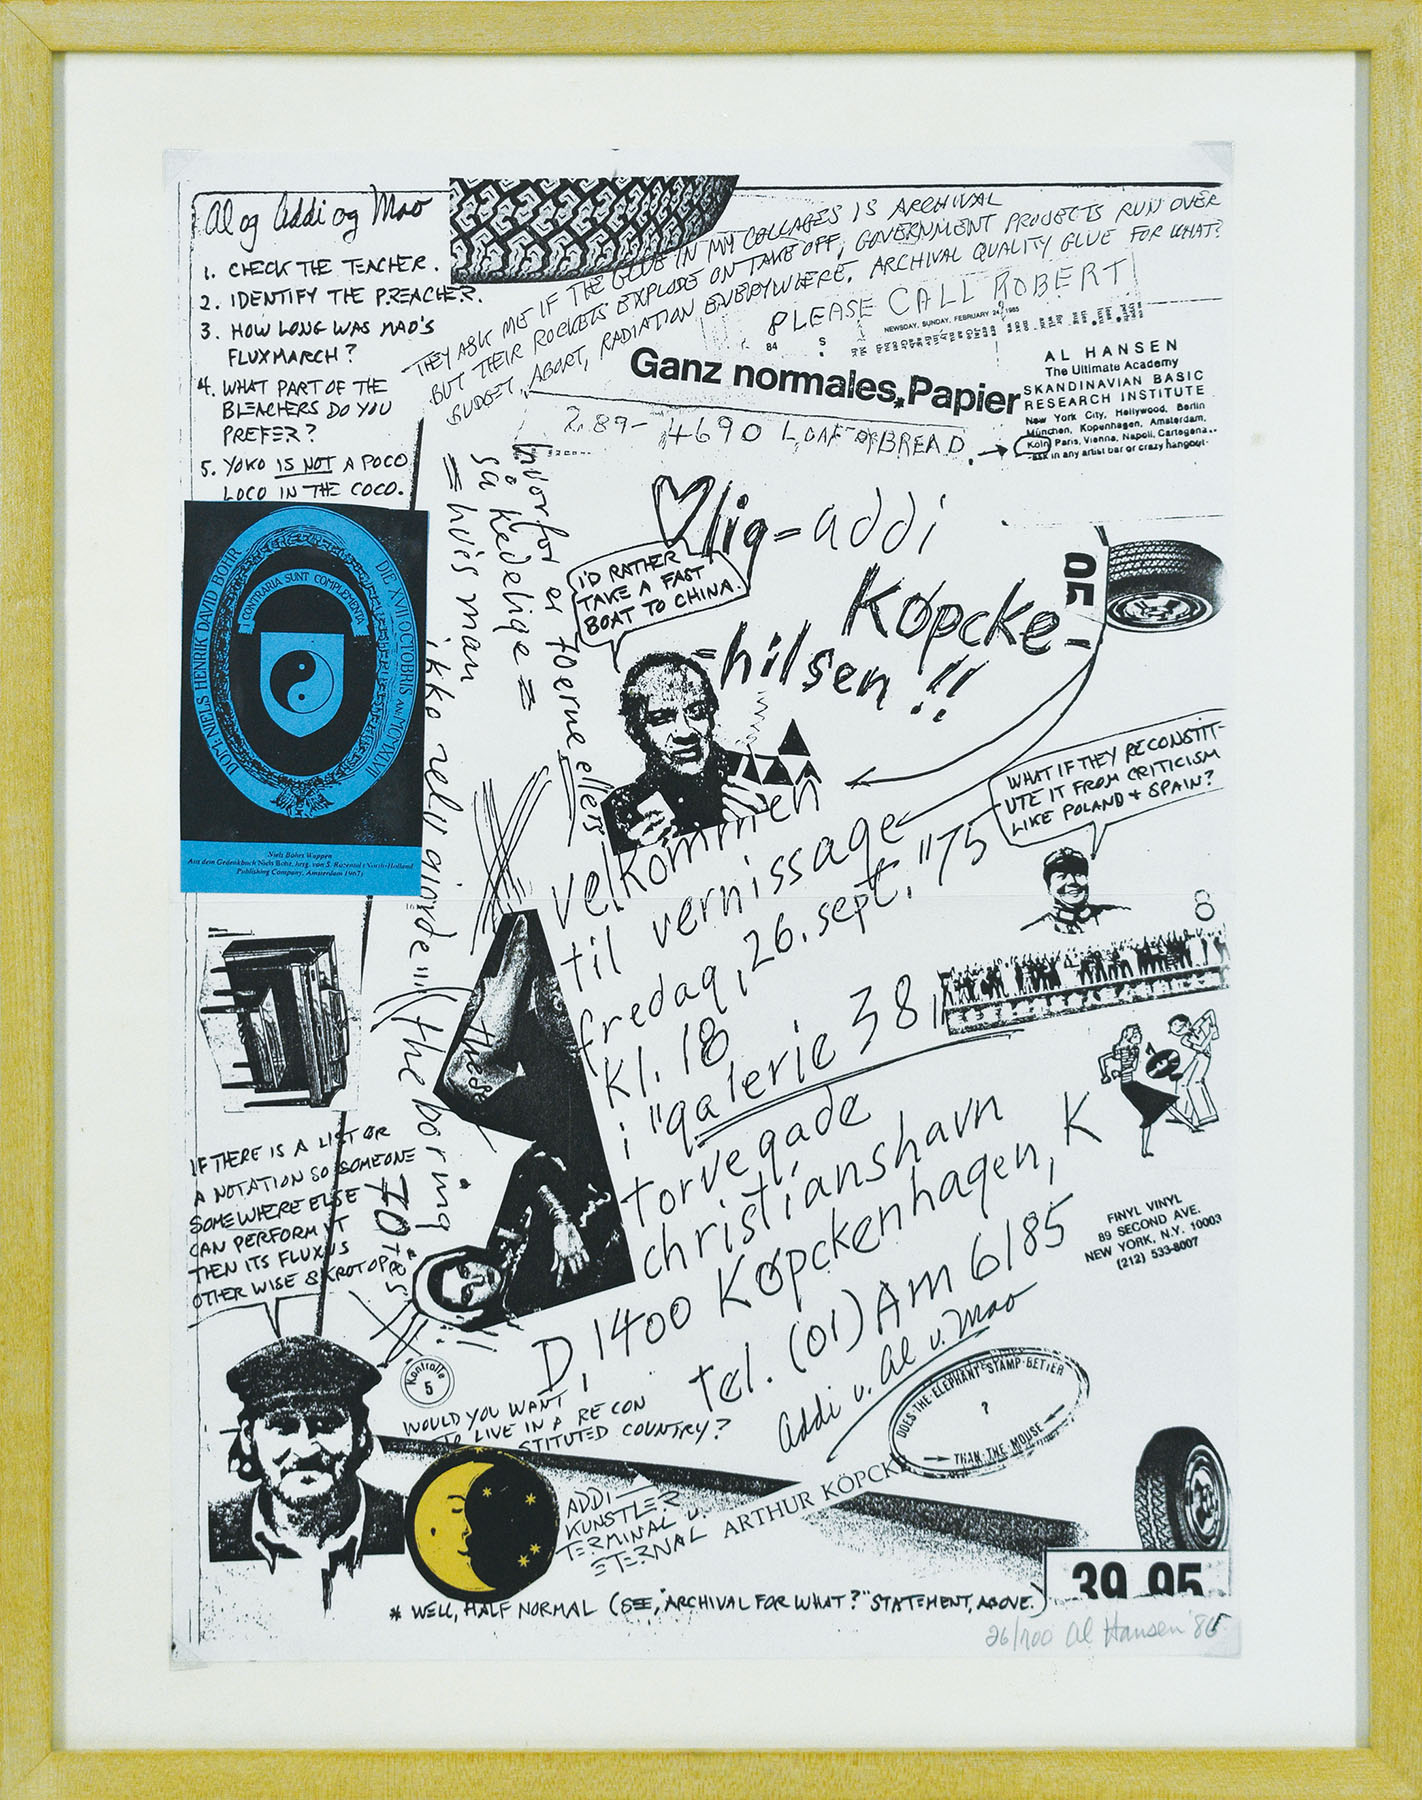 Al og Addi og Mao
1. CHECK THE TEACHER.
2. IDENTIFY THE PREACHER.
3. HOW LONG WAS MAO'S
FLUXMARCH?
4. WHAT PART OF THE
BLEACHERS DO YOU
PREFER?
5. YOKO IS NOT A POCO
LOCO IN THE COCO.
THEY ASK ME IF THE GLUE IN MY COLLAGES IS ARCHIVAL
BUT THEIR ROCKETS EXPLODE ON TAKE OFF, GOVERNMENT PROJECTS RUN OVER
BUDGET, ABORT, RADIATION EVERYWHERE. ARCHIVAL QUALITY GLUE FOR WHAT?
PLEASE CALL ROBERT
NEWSDAY, SUNDAY, FEBRUARY 24, 1985
84 S
Ganz normales * Papier
AL HANSEN
The Ultimate Academy
SKANDINAVIAN BASIC
RESEARCH INSTITUTE
New York City, Hollywood, Berlin
München, Kopenhagen, Amsterdam,
Köln Paris, Vienna, Napoli, Cartagena..
-ask in any artist bar or crazy hangout-
2.89- 4690 LOAF OF BREAD.
hvorfor er tøerne ellers
så kedelige =
= hvis man
ikke selv gjorde"
(the boring
these
70'ties
♡lig=addi
Køpcke-
=hilsen!!
I'D RATHER
TAKE A FAST
BOAT TO CHINA.
05
WHAT IF THEY RECONSTIT-
UTE IT FROM CRITICISM
LIKE POLAND + SPAIN?
DOM: NIELS HENRIK DAVID BOHR DIE XVII OCTOBRIS AN MCMXLVII
CONTRARIA SUNT COMPLEMENTA
Niels Bohrs Wappen
Aus dem Gedenkbuch Niels Bohr, hrsg. von S. Rozental (North-Holland
Publishing Company, Amsterdam 1967)
velkommen
til vernissage
fredag, 26. sept. "75
kl. 18
i "galerie 38"
torvegade
christianshavn
D, 1400 Køpckenhagen, K
tel. (01) Am 6185
Addi u. Al u. Mao
8
FINYL VINYL
89 SECOND AVE.
NEW YORK, N.Y. 10003
(212) 533-8007
IF THERE IS A LIST OR
A NOTATION SO SOMEONE
SOMEWHERE ELSE
CAN PERFORM IT
THEN ITS FLUXUS
OTHER WISE SKROTOPP
Kontrolle
5
WOULD YOU WANT
TO LIVE IN A RE CON
STITUTED COUNTRY?
DOES·THE·ELEPHANT·STAMP·BETTER
?
THAN·THE·MOUSE
ADDI
KUNSTLER
TERMINAL u.
ETERNAL
ARTHUR KÖPCKE
39 95
* WELL, HALF NORMAL (SEE, "ARCHIVAL FOR WHAT?" STATEMENT, ABOVE.)
26/100 Al Hansen '86